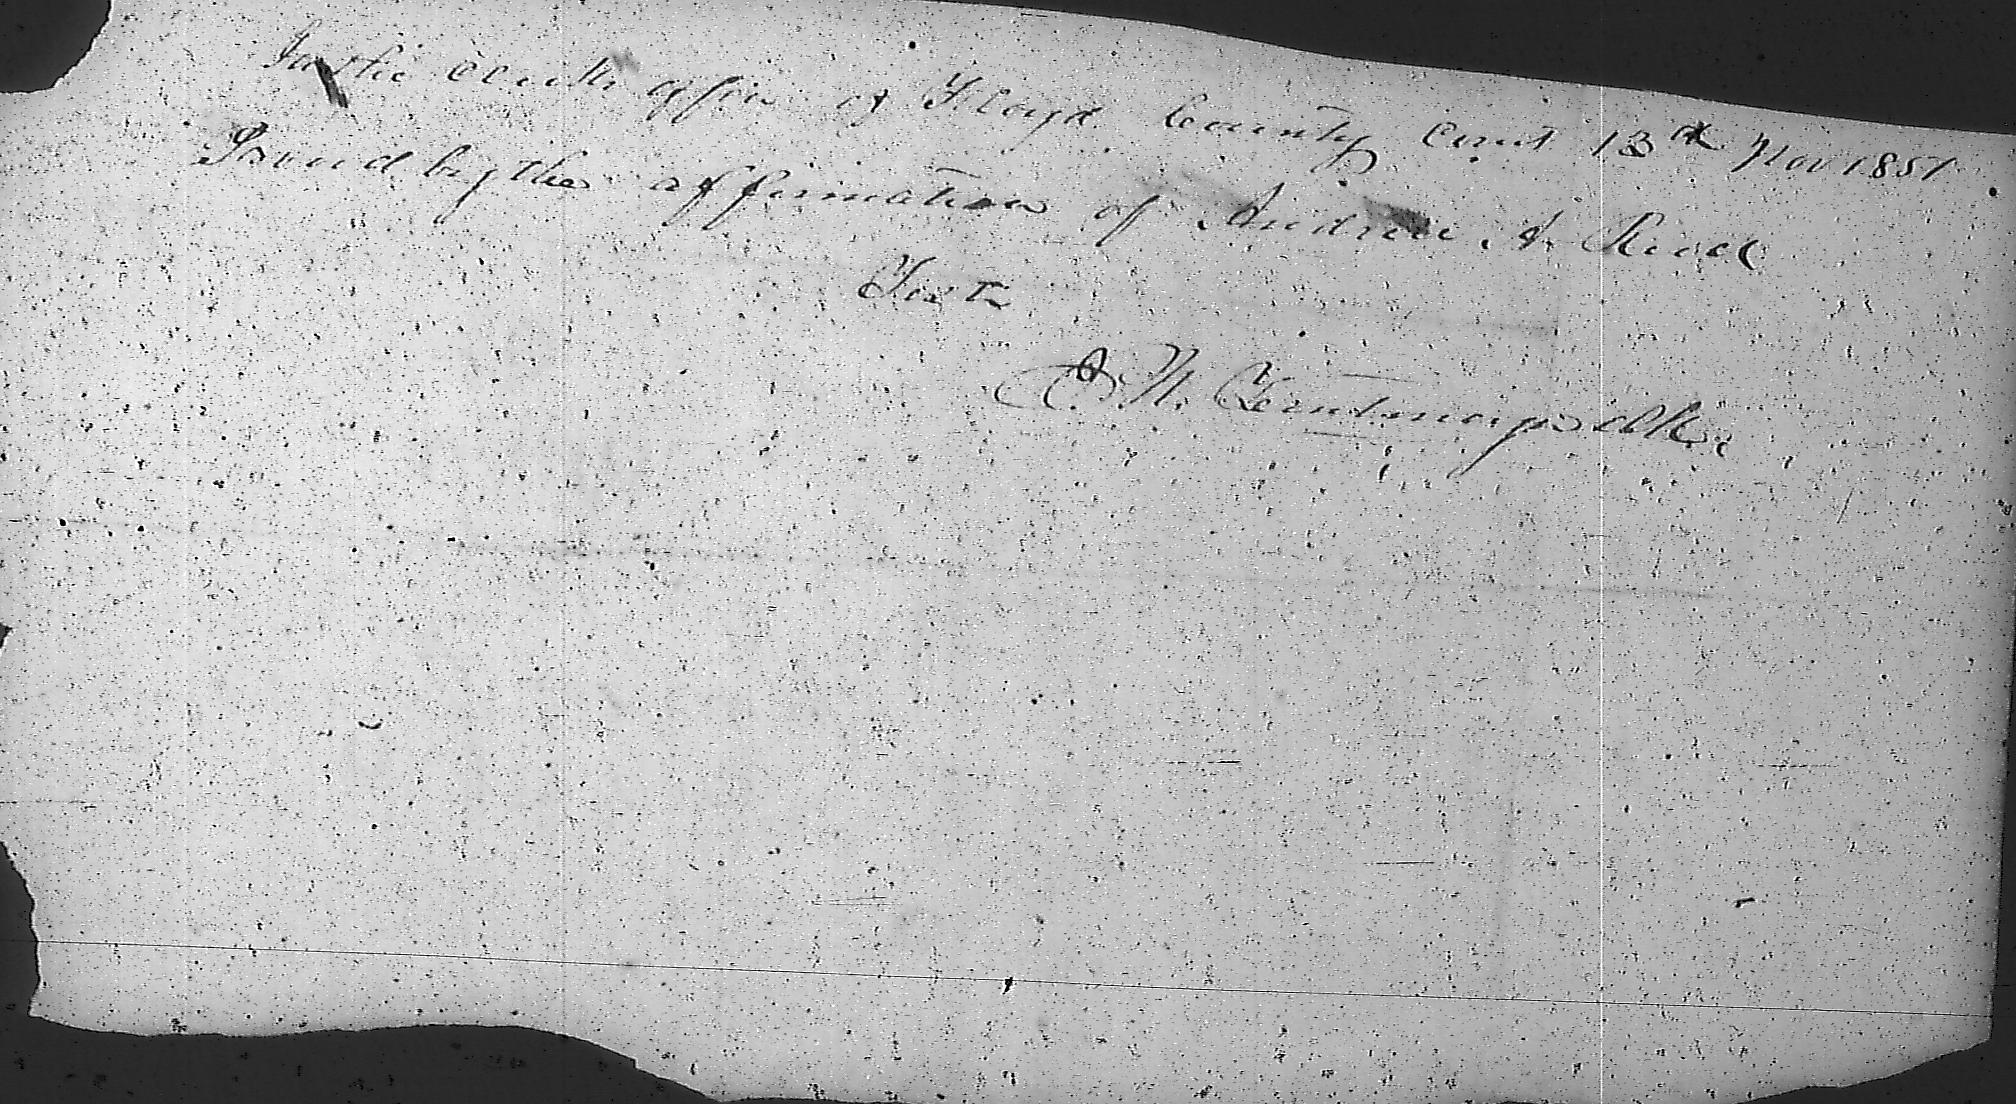 In the Clerks office of Floyd County Court 13th Nov 1851
Proved by the affirmation of Andrew A Reed
Teste
Clk